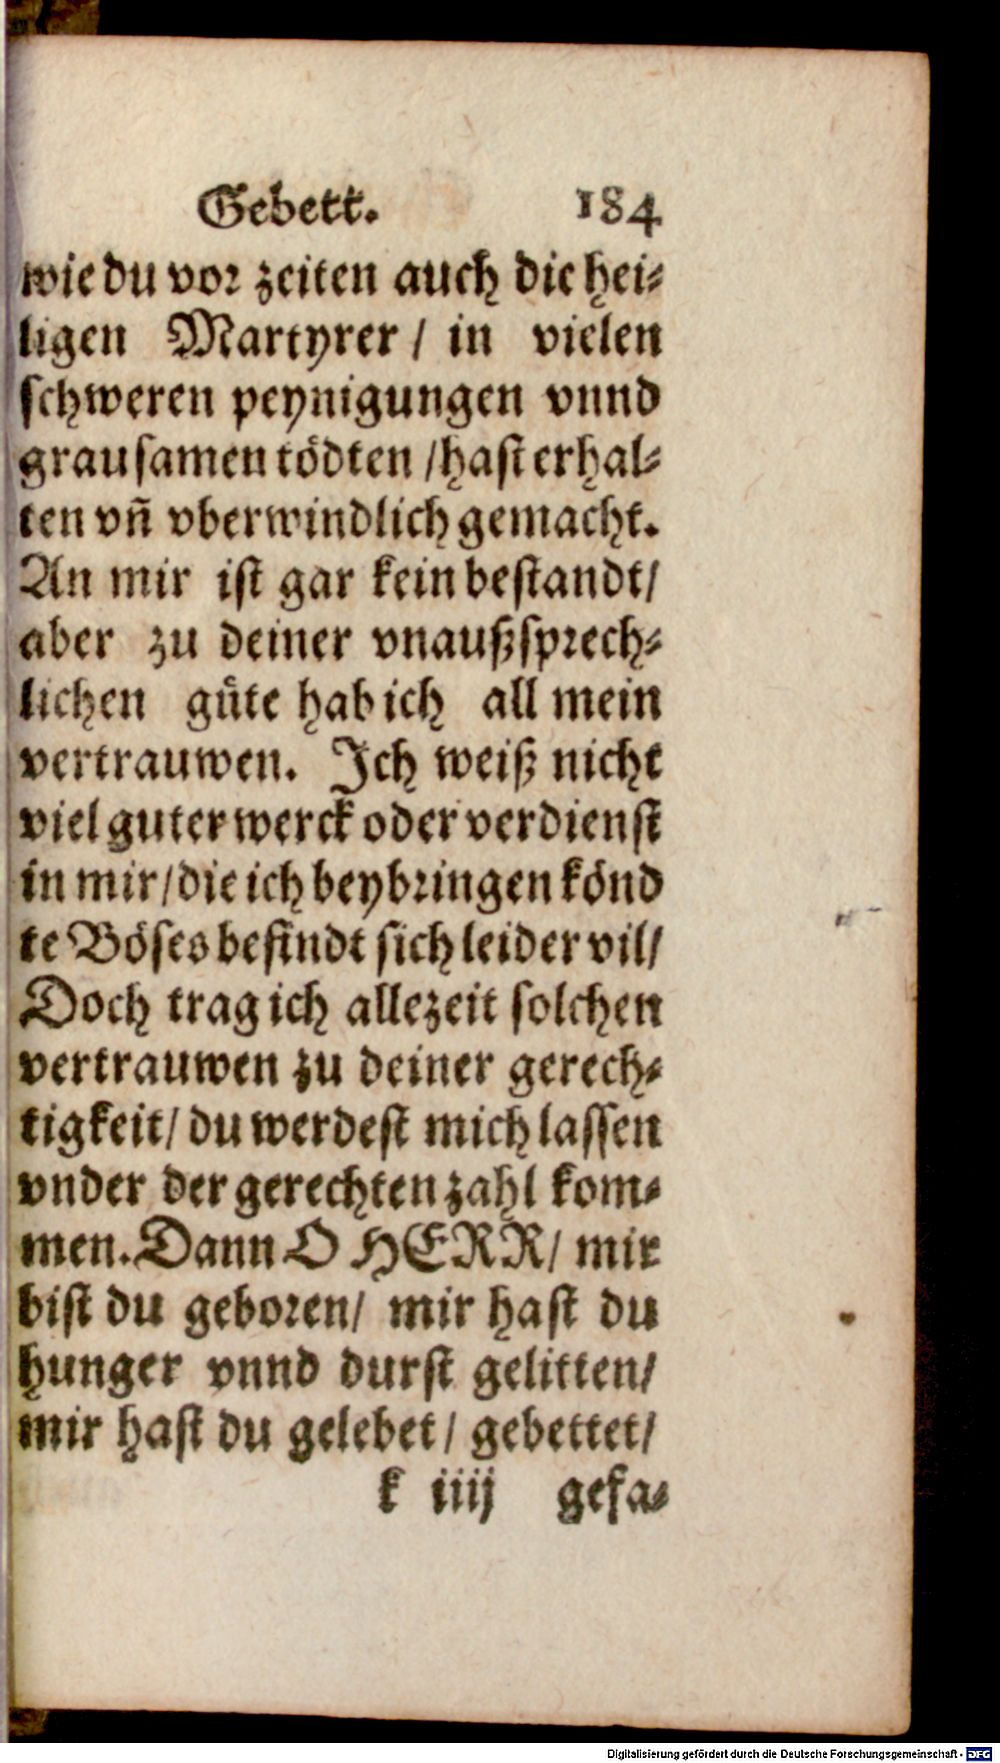 Gebett. 184
wie du vor zeiten auch die hei⸗
ligen Martyrer / in vielen
schweren peynigungen vnnd
grausamen tödten / hast erhal⸗
ten vñ vberwindlich gemacht.
An mir ist gar kein bestandt/
aber zu deiner vnaußsprech⸗
lichen güte hab ich all mein
vertrauwen. Ich weiß nicht
viel guter werck oder verdienst
in mir/ die ich beybringen könd
te Böses befindt sich leider vil/
Doch trag ich allezeit solchen
vertrauwen zu deiner gerech⸗
tigkeit/ du werdest mich lassen
vnder der gerechten zahl kom⸗
men. Dann O HERR/ mir
bist du geboren/ mir hast du
hunger vnnd durst gelitten/
mir hast du gelebet/ gebettet/
k iiij gefa⸗
Digitalisierung gefördert durch die Deutsche Forschungsgemeinschaft - DFG